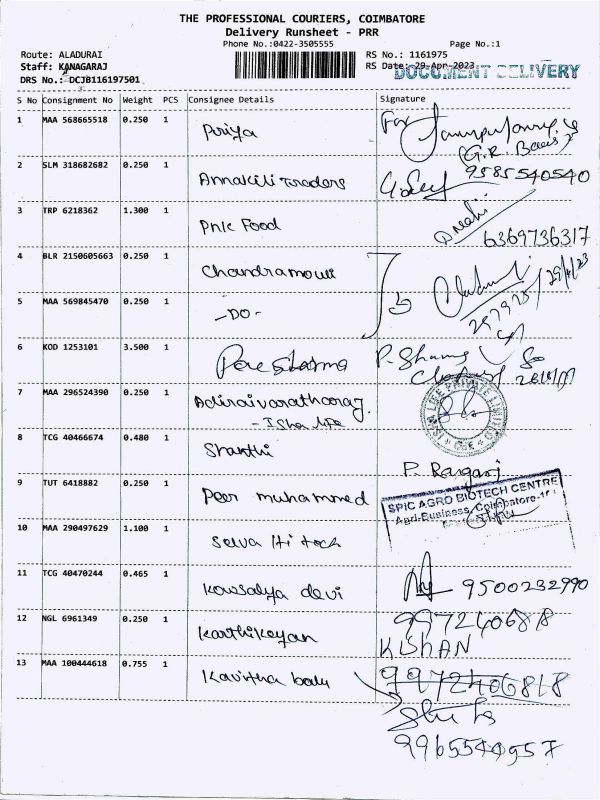 THE PROFESSIONAL COURIERS, COIMBATORE
Delivery Runsheet - PRR
Phone No.:0422-3505555 Page No.:1
Route: ALADURAI RS No.: 1161975
Staff: KANAGARAJ RS Date: 29-Apr-2023
DRS No.: DCJB116197501 DOCUMENT DELIVERY
S No Consignment No Weight PCS Consignee Details Signature
1 MAA 568665518 0.250 1 Priya For
(G.R. 
2 SLM 318682682 0.250 1 Annakili Traders 9585540540
3 TRP 6218362 1.300 1 Pnk Food
6369736317
4 BLR 2150605663 0.250 1 Chandramouli
29/4/23
5 MAA 569845470 0.250 1 -DO-
6 KOD 1253101 3.500 1 P. 
7 MAA 296524390 0.250 1 Adiraivaratharaj.
- Isha life
ISHA LIFE PRIVATE LIMITED CBE
8 TCG 40466674 0.480 1 Shanthi
P. Rangaraj
9 TUT 6418882 0.250 1 Peer muhammed
SPIC AGRO BIOTECH CENTRE
Agri-Business, Coimbatore
10 MAA 290497629 1.100 1 Selva Hi tech
11 TCG 40470244 0.465 1 Kowsalya devi 9500232990
12 NGL 6961349 0.250 1 Karthikeyan 9972406818
KISHAN
13 MAA 100444618 0.755 1 Kavitha balu 9972406818
9965544957